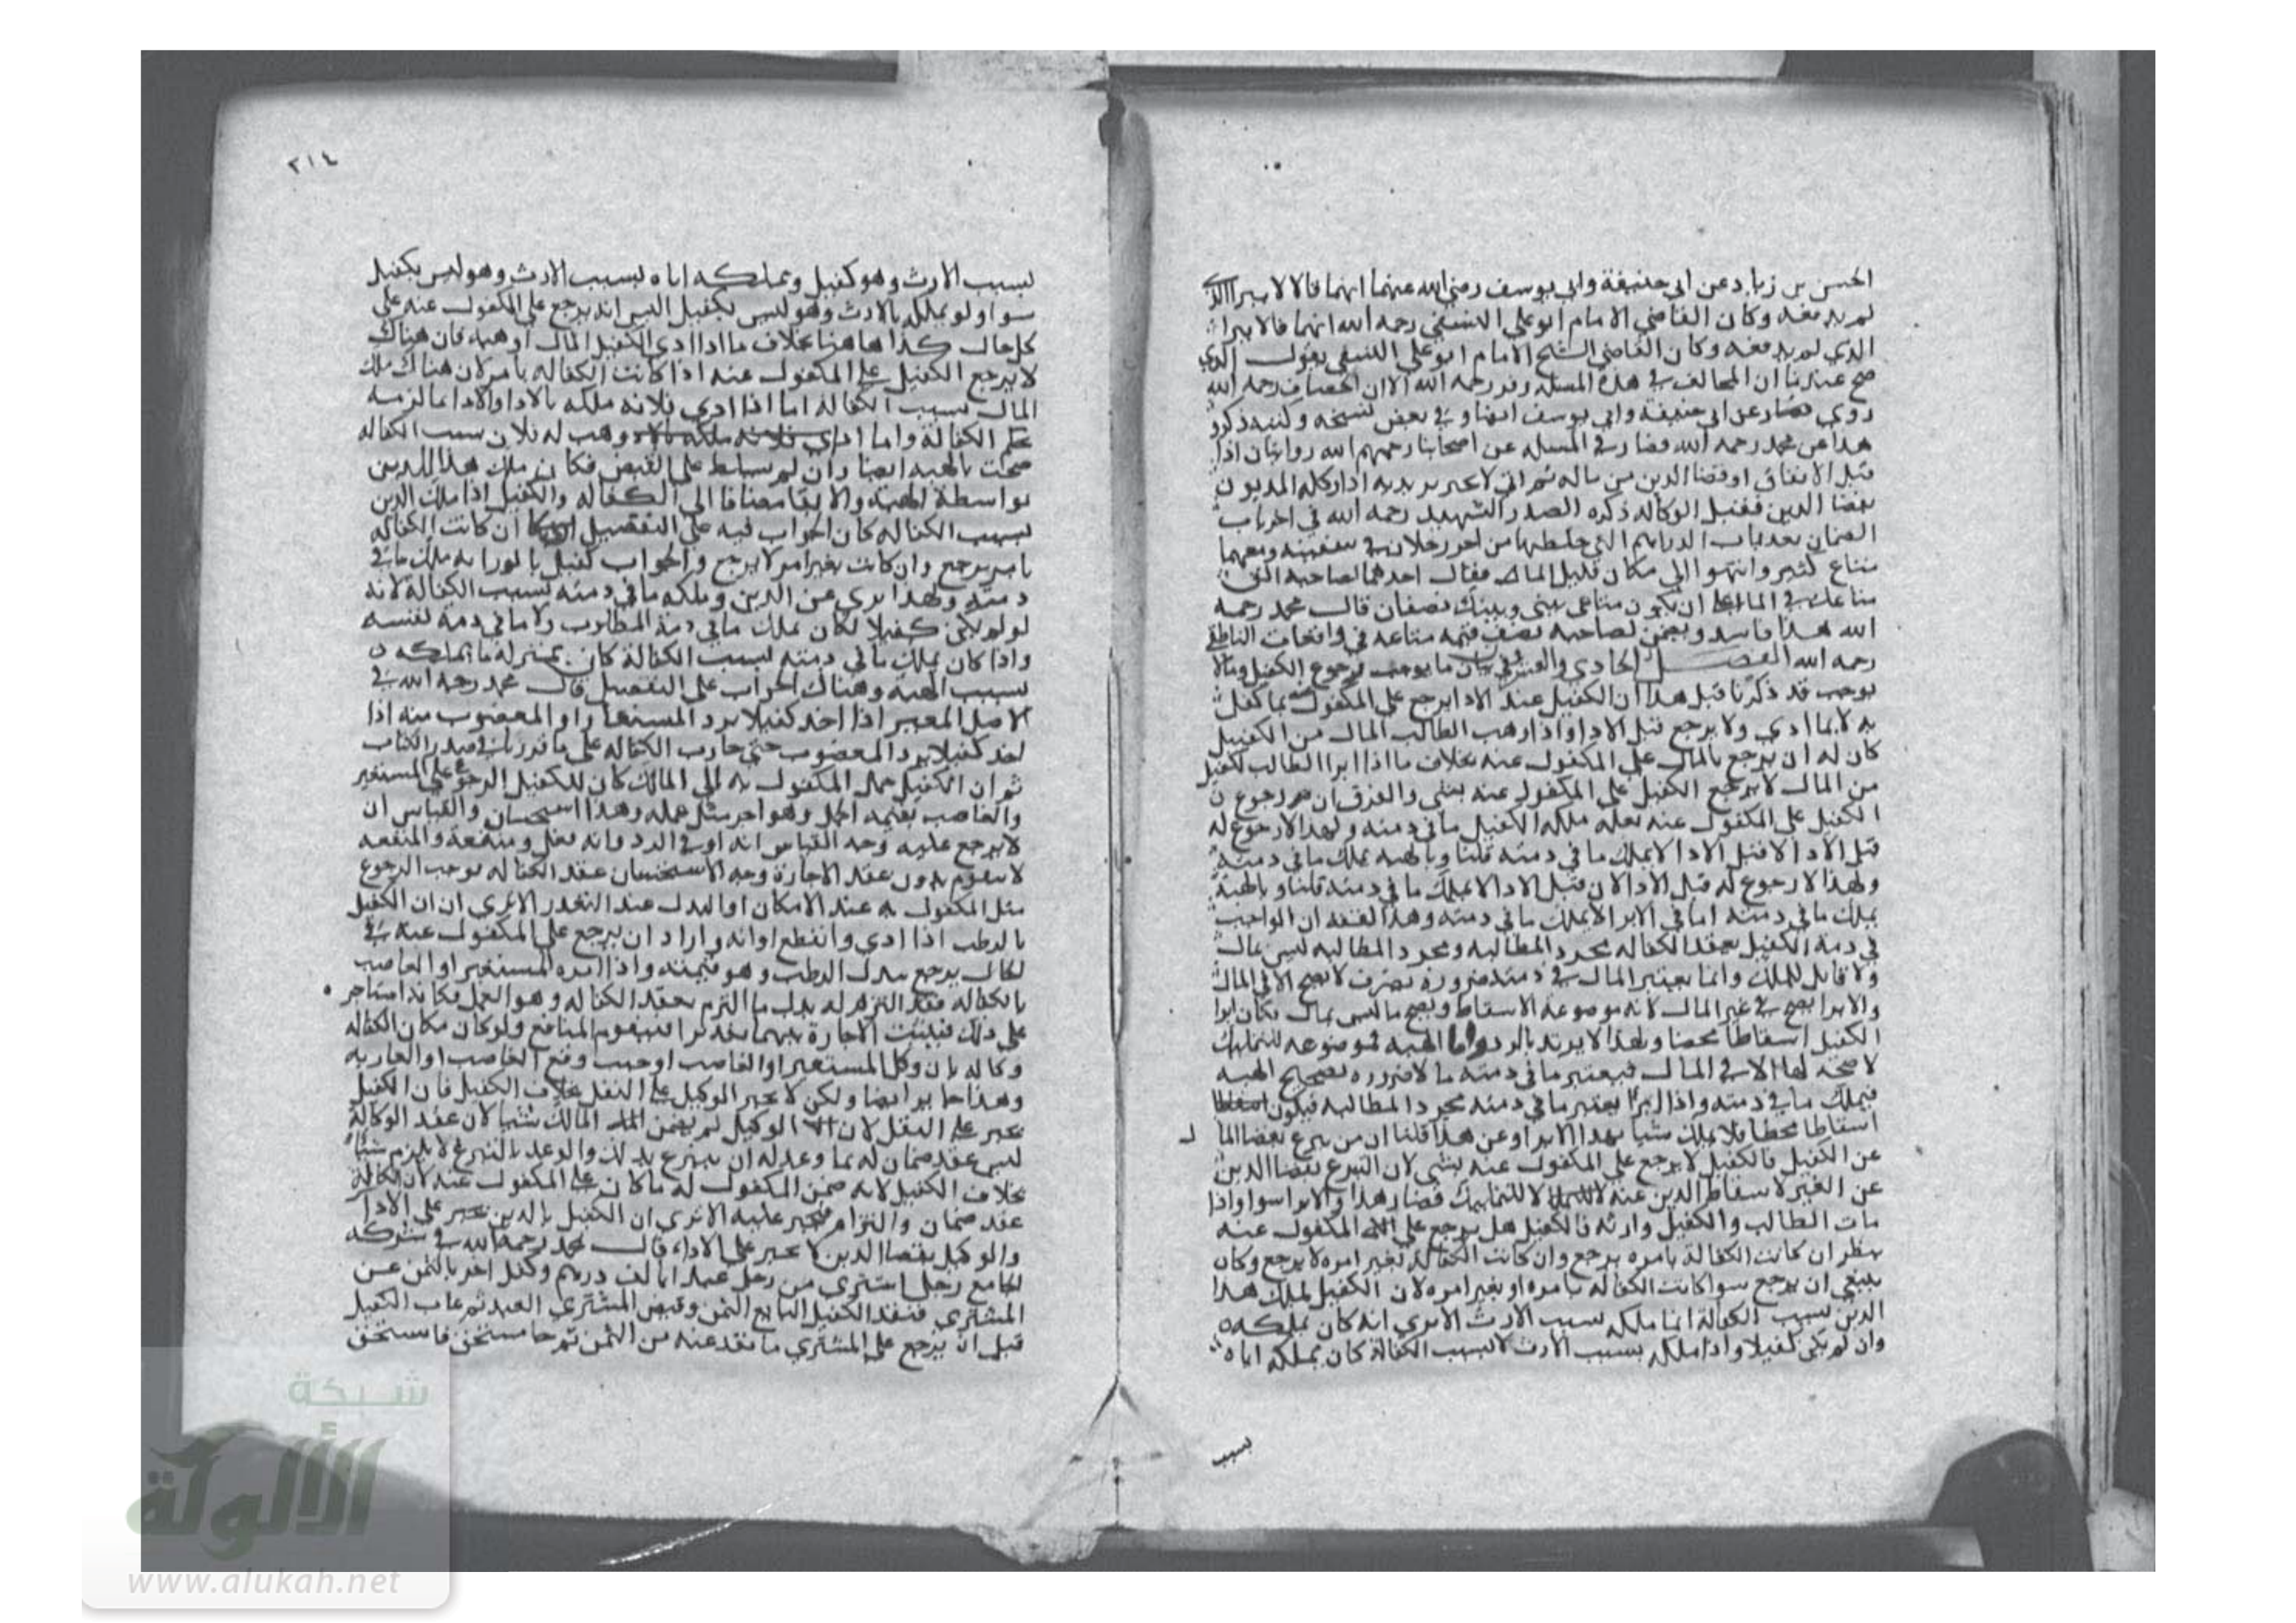 الحسن بن زياد عن ابي حنيفة وابي يوسف رضي الله عنهما انهما قالا لا يبرا
لم يدفعه وكان القاضي الامام ابو علي النسفي رحمه الله انهما قالا يبرا
الذي لم يدفعه وكان القاضي الشيخ الامام ابو علي النسفي يقول الذي
صح عندنا ان المخالف في هذه المسله زفر رحمه الله الا ان الخصاف رحمه الله
روي عن ابي حنيفة وابي يوسف ايضا و في بعض نسخه وكتبه ذكر
هذا عن محمد رحمه الله فصار في المسله عن اصحابنا رحمهم الله روايتان اذا
قبل الانفاق او قضا الدين من ماله ثم اتي لا يجبر اذا وكله المديون
بقضا الدين فقبل الوكاله ذكره الصدر الشهيد رحمه الله في اخر باب
الضمان بعد باب الدراهم التي خلطها من اخر رجلان في سفينه ومعهما
متاع كثير وانتهوا الي مكان قليل الما فقال احدهما لصاحبه الق
متاعك في الما علي ان يكون متاعي بيني وبينك نصفان قال محمد رحمه
الله هذا فاسد ويضمن لصاحبه نصف قيمه متاعه في واقعات الناطفي
رحمه الله الفصل الحادي والعشرون في بيان ما يوجب رجوع الكفيل وما لا
يوجب قد ذكرنا قبل هذا ان الكفيل عند الادا يرجع علي المكفول عنه بما كفل
به لا بما ادي ولا يرجع قبل الادا واذا وهب الطالب المال من الكفيل
كان له ان يرجع بالمال علي المكفول عنه بخلاف ما اذا ابرا الطالب الكفيل
من المال لا يرجع الكفيل علي المكفول عنه بشي والفرق ان رجوع
الكفيل علي المكفول عنه بعله ملكه الكفيل ما في دمته ولهدا لا رجوع له
قبل الادا لا قبل الادا لا يملك ما في دمته قلنا وبالهبه يملك ما في دمته
ولهدا لا رجوع له قبل الادا لان قبل الادا لا يملك ما في دمته قلنا وبالهبة
يملك ما في دمته اما في الابرا لا يملك ما في دمته وهدا الفقه ان الواجب
في دمة الكفيل بعقد الكفاله مجرد المطالبه ومجرد المطالبه ليس بمال
ولا قابل للملك وانما يعتبر المال في دمته ضرورة تصرف لا يصح الا في المال
والابرا يصح في غير المال لانه موضوعه الاسقاط ويصح ما ليس بمال فكان ابرا
الكفيل اسقاطا محضا ولهدا لا يرتد بالرد واما الهبه موضوعه للتمليك
لا صحه لها الا في المال فيعتبر ما في دمته مالا ضروره تصحيح الهبه
فيملك ما في دمته واذا ابرا يعتبر ما في دمته مجرد المطالبه فيكون
اسقاطا محضا فلا يملك شيا بهدا الابرا وعن هدا قلنا ان من تبرع بقضا الما
ل
عن الكفيل فالكفيل لا يرجع علي المكفول عنه بشي لان التبرع بقضا الدين
عن الغير لاسقاط الدين عنه لا للتمليك فصار هدا والابرا سوا واذا
مات الطالب والكفيل وارثه فالكفيل هل يرجع علي المكفول عنه
ينظر ان كانت الكفالة بامره يرجع وان كانت الكفالة بغير امره لا يرجع وكان
ينبغي ان يرجع سوا كانت الكفاله بامره او بغير امره لان الكفيل لم يملك هدا
الدين بسبب الكفالة انما ملكه بسبب الارث الا يري انه كان يملكه
وان لم يكن كفيلا واذا ملكه بسبب الارث لا بسبب الكفالة كان يملكه اياه
بسبب
٢١٤
بسبب الارث وهو كفيل ويملكه اياه بسبب الارث وهو ليس بكفيل
سوا ولو يملكه بالارث وهو ليس بكفيل اليس انه يرجع علي المكفول عنه علي
كل حال كذا هاهنا بخلاف ما اذا ادي الكفيل المال او وهبه فان هناك
لا يرجع الكفيل علي المكفول عنه اذا كانت الكفاله بامر لان هناك ملك
المال بسبب الكفاله اما اذا ادي فلانه ملكه بالادا والادا بما لزمه
بحكم الكفالة واما وهب له فلان بسبب الكفاله
صحت بالهبه ايضا وان لم يسلط علي القبض فكان ملك هدا الدين
بواسطة الهبه والايفا مضافا الي الكفاله والكفيل اذا ملك الدين
بسبب الكفاله كان الجواب فيه علي التفصيل ان كانت الكفاله
بامر يرجع وان كانت بغير امر لا يرجع والجواب ملك ما في
دمته ولهدا بري عن الدين وملكه ما في دمته بسبب الكفالة لانه
لو لم يكن كفيلا لكان يملك ما في دمة المطلوب لا ما في دمة نفسه
واذا كان يملك ما في دمته بسبب الكفالة كان بمنزلة ما يملكه
بسبب الهبه وهناك الجواب علي التفصيل قال محمد رحمه الله في
الاصل المعير اذا اخذ كفيلا برد المستعار او المغصوب منه اذا
اخذ كفيلا برد المغصوب حتي جازت الكفاله علي ما مر في صدر الكتاب
ثم ان الكفيل حمل المكفول به الي المالك كان للكفيل الرجوع علي المستعير
والغاصب بقيمه الحمل وهو اجر مثل عمله وهدا استحسان والقياس ان
لا يرجع عليه وجه القياس انه اوفي الرد وانه نقل ومنفعة والمنفعه
لا تتقوم بدون عقد الاجارة وجه الاستحسان عقد الكفاله يوجب الرجوع
مثل المكفول به عند الامكان او البدل عند التعدر الا يري ان الكفيل
بالرطب اذا ادي وانقطع اوانه واراد ان يرجع علي المكفول عنه في
الحال يرجع ببدل الرطب وهو قيمته واذا امره المستعير او الغاصب
بالكفاله فقد التزم له بدل ما التزم بعقد الكفاله وهو العمل فكانه استاجر
علي ذلك فيثبت الاجارة بينهما فيتقوم المنافع ولو كان مكان الكفاله
وكاله بان وكل المستعير او الغاصب
وهدا جايز ايضا ولكن لا يجبر الوكيل علي النقل بخلاف الكفيل فان الكفيل
يجبر علي النقل لان الوكيل لم يضمن المالك شيا لان عقد الوكالة
ليس عقد ضمان له بما وعد له ان يتبرع بدلك والوعد بالتبرع لا يلزم شيا
بخلاف الكفيل لانه ضمن المكفول له ما كان علي المكفول عنه لان الكفالة
عقد ضمان والتزام فيجبر عليه الا يري ان الكفيل بالدين يجبر علي الادا
والوكيل بقضا الدين لا يجبر علي الاداء قال محمد رحمه الله في شركه
الجامع رجل اشتري من رجل عبدا بالف درهم وكفل اخر بالثمن عن
المشتري فنقد الكفيل البايع الثمن وقبض المشتري العبد ثم غاب الكفيل
قبل ان يرجع علي المشتري ما نقد عنه من الثمن ثم جا مستحق فاستحق
شبكة
الألوكة
www.alukah.net